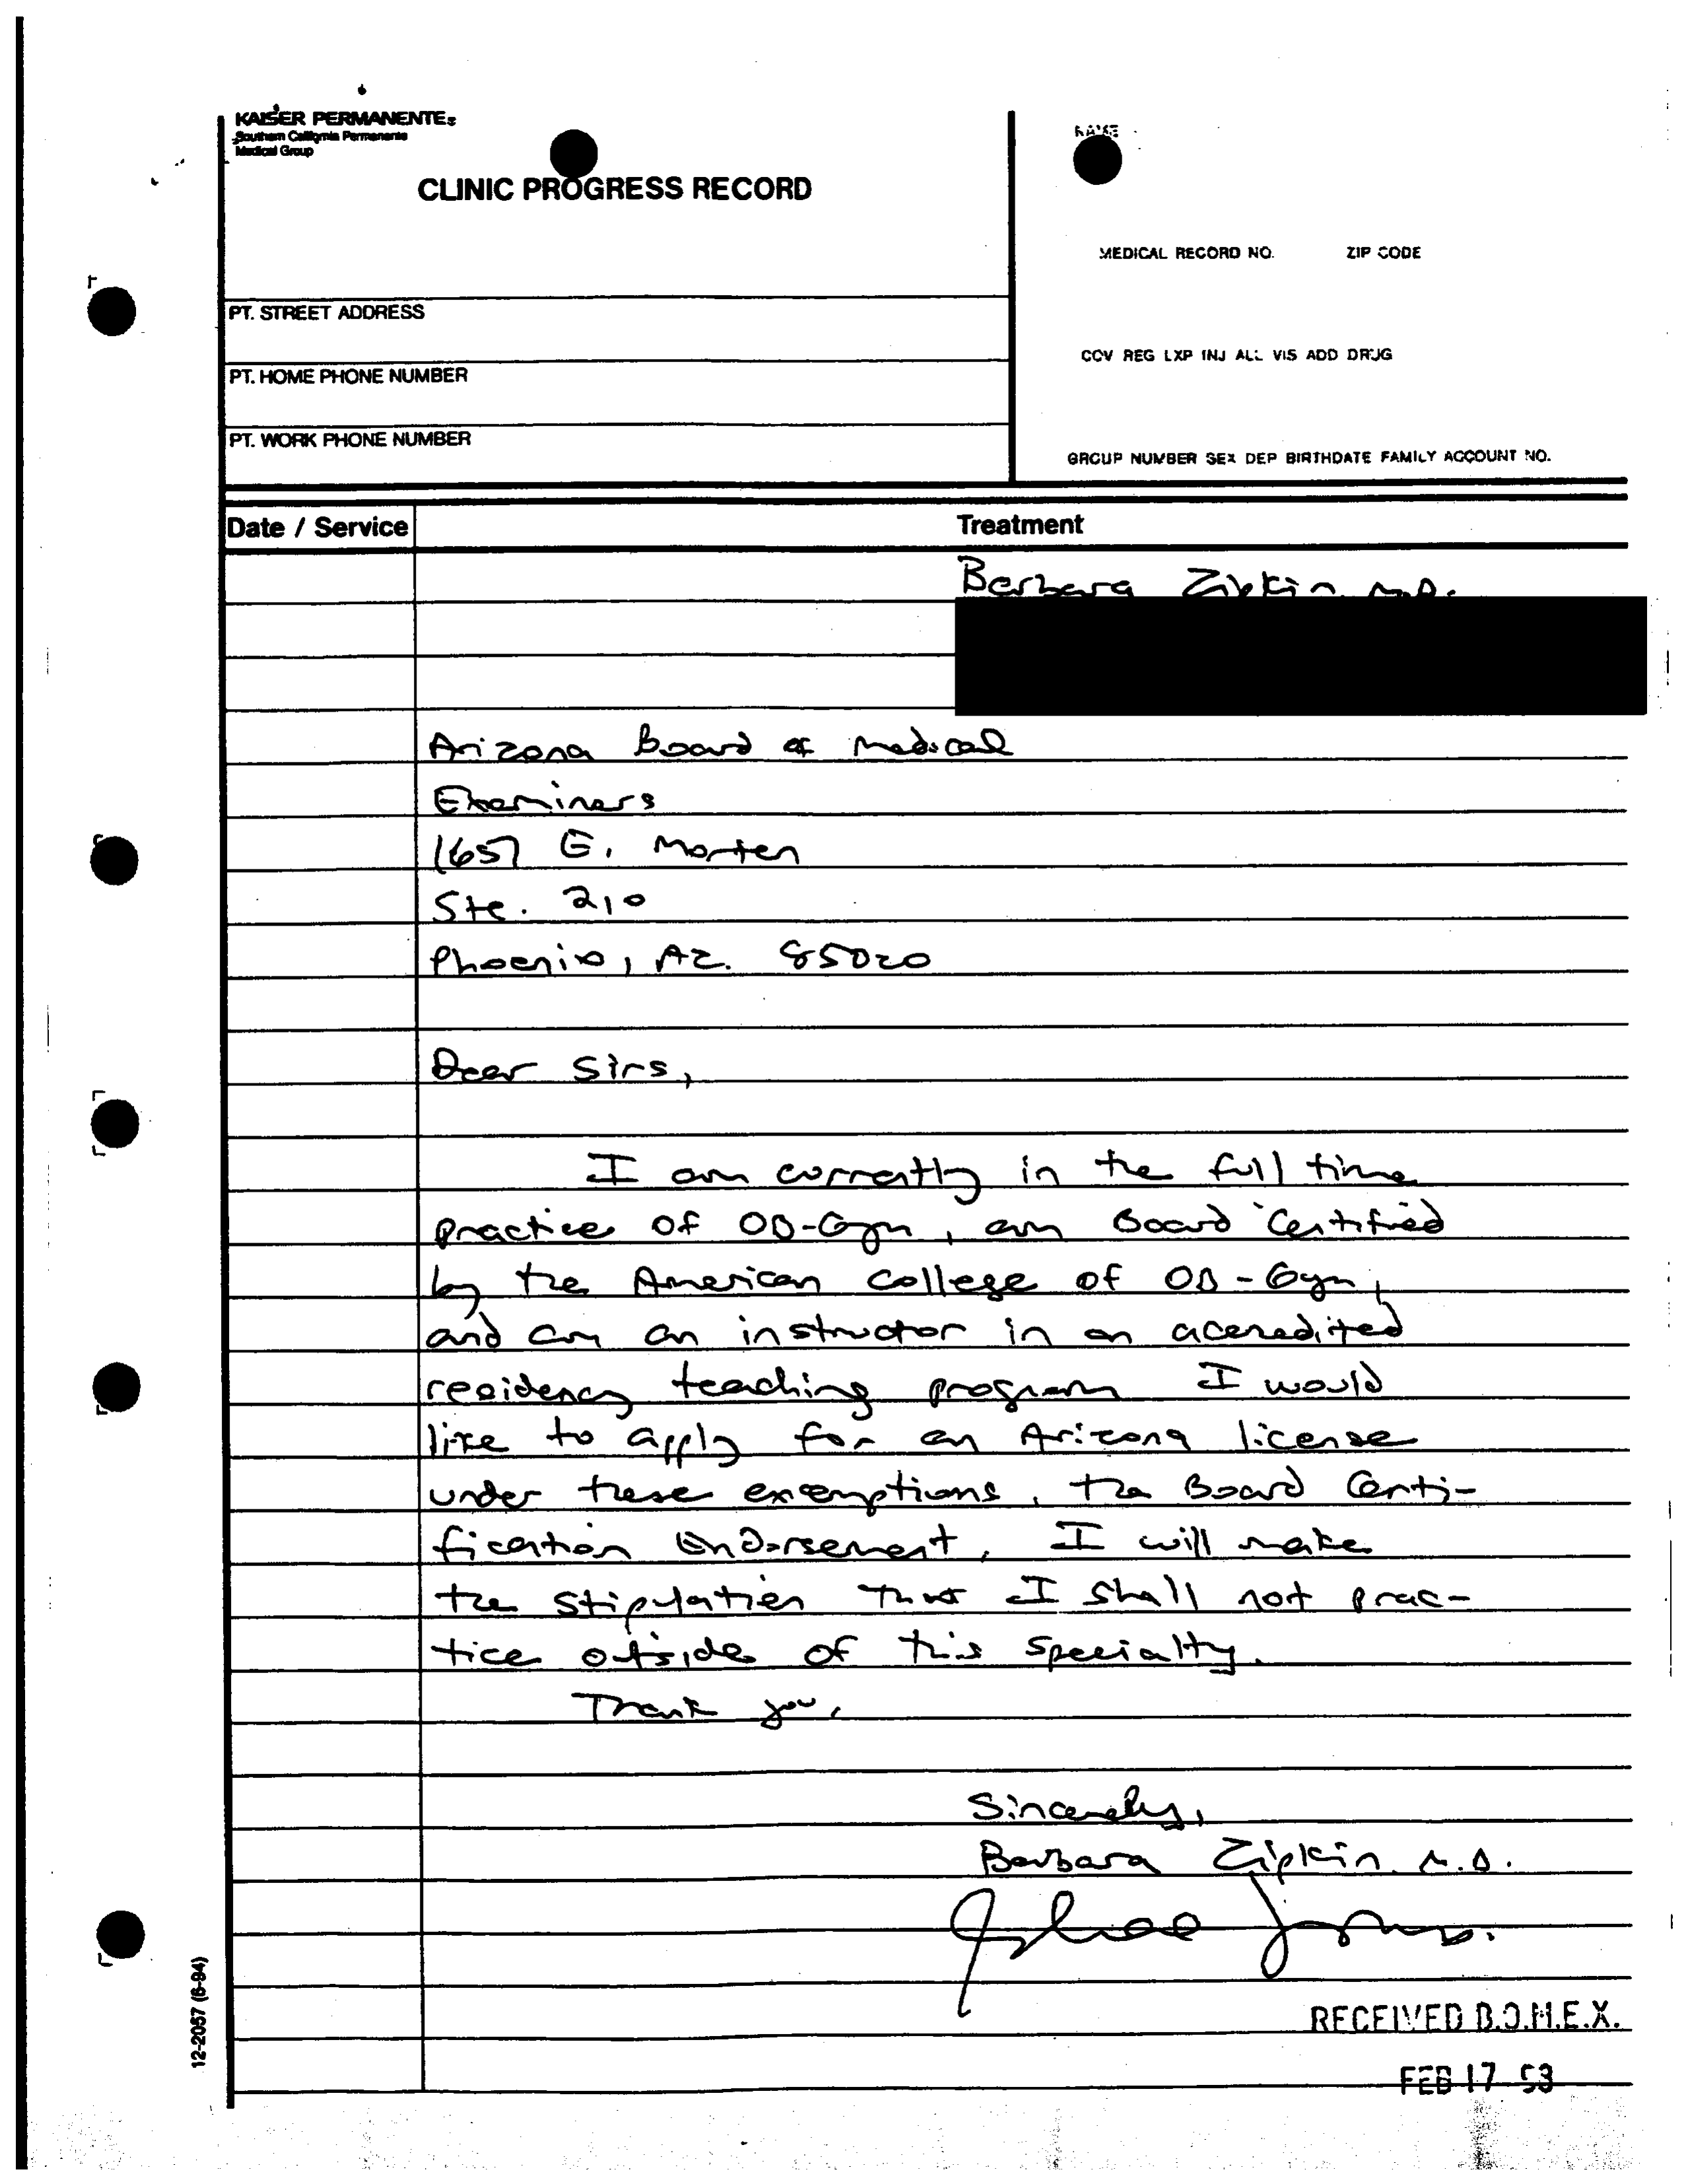 KAISER PERMANENTE
Southern California Permanente
Medical Group
CLINIC PROGRESS RECORD
NAME
MEDICAL RECORD NO. ZIP CODE
PT. STREET ADDRESS
COV REG EXP INJ ALL VIS ADD DRUG
PT. HOME PHONE NUMBER
PT. WORK PHONE NUMBER
GROUP NUMBER SEX DEP BIRTHDATE FAMILY ACCOUNT NO.
Date / Service Treatment
Barbara Zipkin M.D.
Arizona Board of Medical
Examiners
1657 E. Morten
Ste. 210
Phoenix, AZ. 85020
Dear Sirs,
I am currently in the full time
practice of OB-Gyn, am Board Certified
by the American College of OB-Gyn,
and am an instructor in an accredited
residency teaching program I would
like to apply for an Arizona license
under these exemptions, the Board Certi-
fication Endorsement. I will make
the stipulation that I shall not prac-
tice outside of this specialty.
Thank you,
Sincerely,
Barbara Zipkin M.D.
12-2057 (6-94)
RECEIVED B.O.M.E.X.
FEB 17